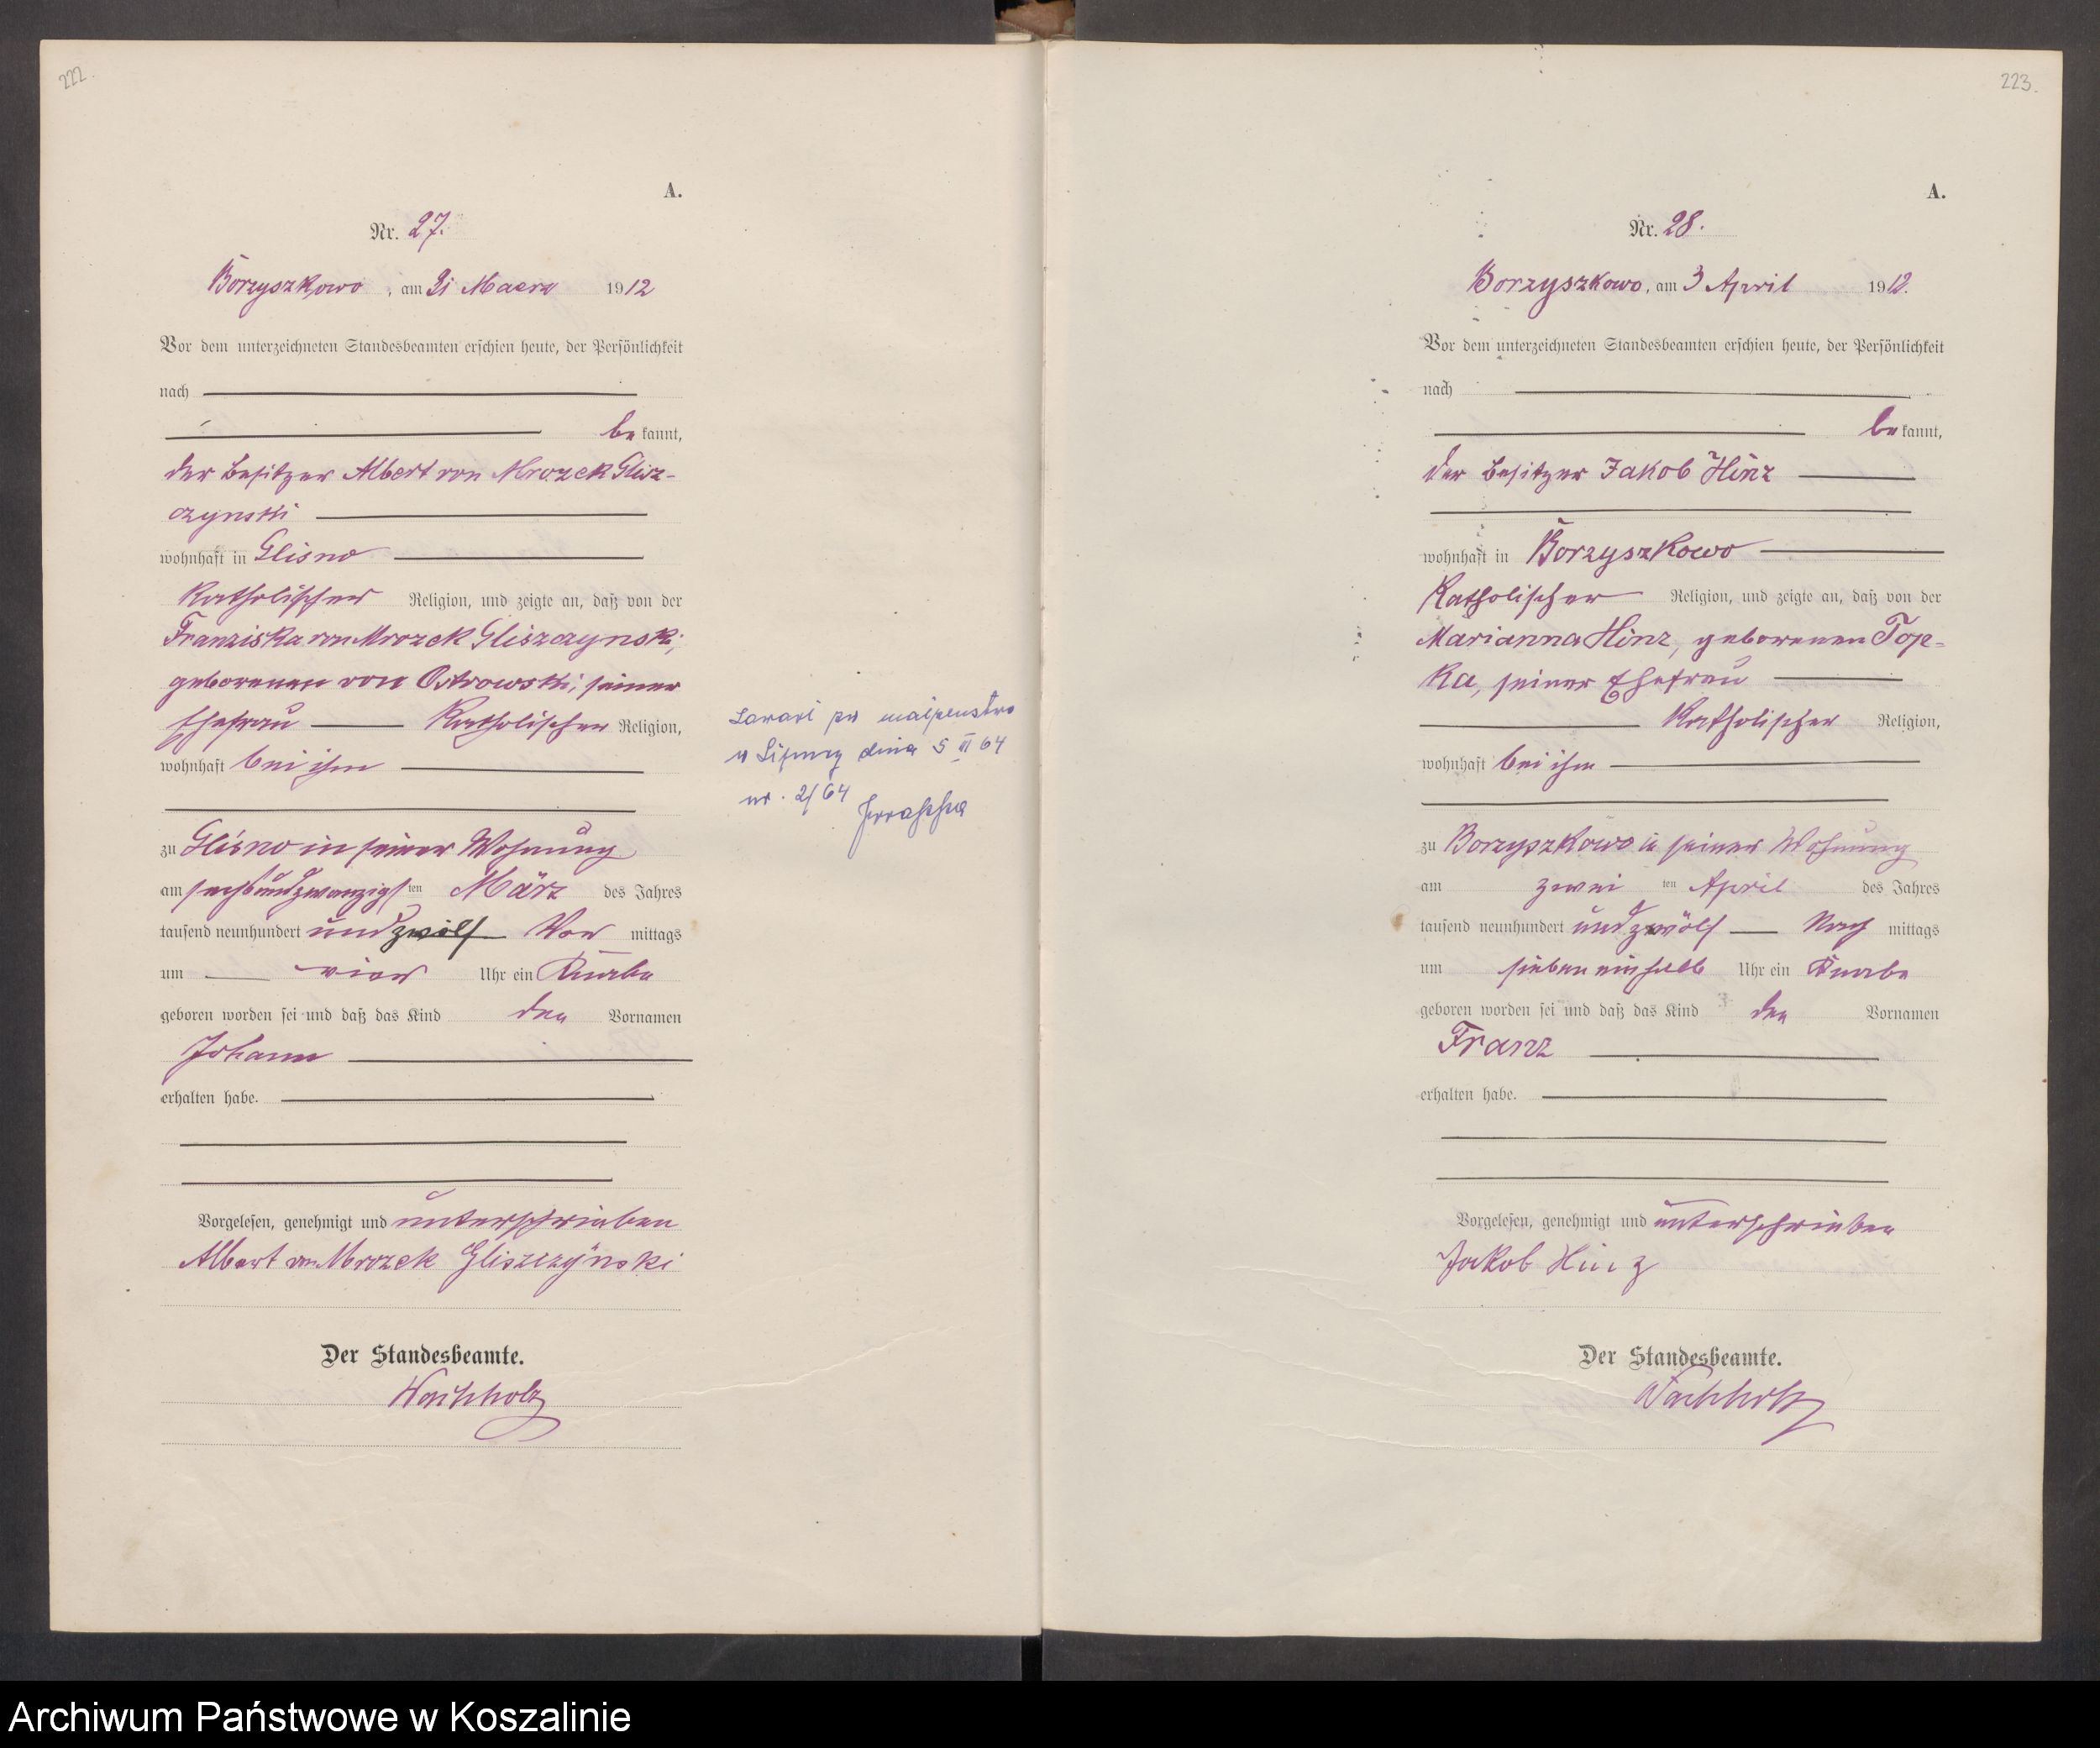 222.
A.
Nr. 27.
Borzyszkowo, am 31 Maerz 1912
Vor dem unterzeichneten Standesbeamten erschien heute, der Persönlichkeit
nach
be kannt,
der Besitzer Albert von Mrozek Glisz-
czynski
wohnhaft in Glisno
Katholischer Religion, und zeigte an, daß von der
Franziska von Mrozek Gliszczynski,
geborenen von Ostrowski, seiner
Ehefrau Katholischer Religion,
wohnhaft bei ihm
zu Glisno in seiner Wohnung
am sechsundzwanzigsten März des Jahres
tausend neunhundert und zwölf Vor mittags
um vier Uhr ein Knabe
geboren worden sei und daß das Kind den Vornamen
Johann
erhalten habe.
Vorgelesen, genehmigt und unterschrieben
Albert von Mrozek Gliszczynski
Der Standesbeamte.
Wachholz
nr. 2/64
223.
A.
Nr. 28.
Borzyszkowo, am 3 April 1912.
Vor dem unterzeichneten Standesbeamten erschien heute, der Persönlichkeit
nach
be kannt,
der Besitzer Jakob Hinz
wohnhaft in Borzyszkowo
Katholischer Religion, und zeigte an, daß von der
Marianna Hinz, geborenen Top-
ka, seiner Ehefrau
Katholischer Religion,
wohnhaft bei ihm
zu Borzyszkowo in seiner Wohnung
am zwei ten April des Jahres
tausend neunhundert und zwölf Nach mittags
um sieben einhalb Uhr ein Knabe
geboren worden sei und daß das Kind den Vornamen
Franz
erhalten habe.
Vorgelesen, genehmigt und unterschrieben
Jakob Hinz
Der Standesbeamte.
Wachholz
Archiwum Państwowe w Koszalinie